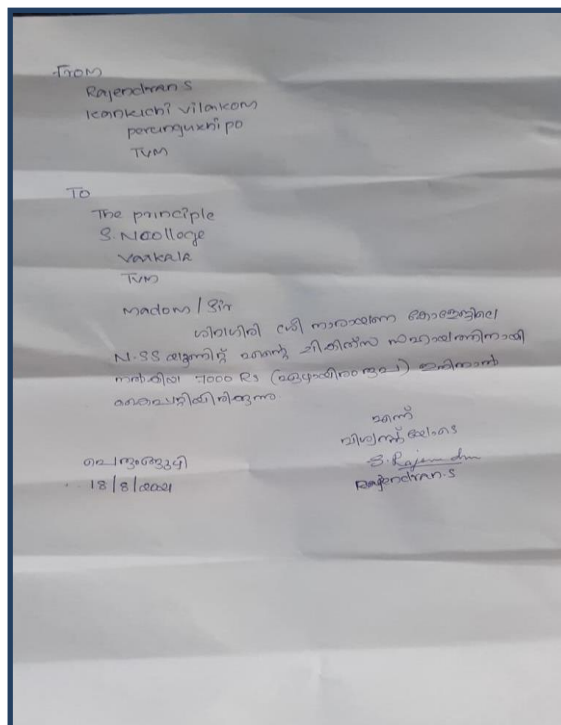 From
Rajendran S
Kankichi Vilakom
perunguzhi po
TVM
To
The principle
S.N College
Varkala
TVM
Madom / Sir
ശിവഗിരി ശ്രീ നാരായണ കോളേജിലെ
N.SS യൂണിറ്റ് എന്റെ ചികിത്സ സഹായത്തിനായി
നൽകിയ 7000 Rs (ഏഴായിരം രൂപ) ഇതിനാൽ
കൈപ്പറ്റിയിരിക്കുന്നു
എന്ന്
വിശ്വസ്തതയോടെ
പെരുങ്ങുഴി
S. Rajendran
18/8/2021
Rajendran.S